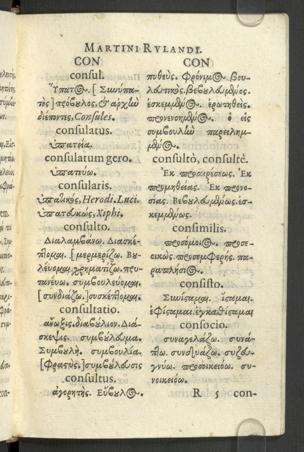 MARTINI RVLANDI.
CON
consul.
Ὕπατος. [Σκυύπα-
διέποντες, Consules.
consulatus.
ὑπατεία.
consulatum gero.
ὑπατεύω.
consularis.
ὑπατικὸς, Herodi. Luci.
ὑπατικῶς, Xiphi.
consulto.
Διαλαμβάνω. Διασκέ-
πτομαι. [μερμερίζω. Βυ-
λεύομαι, χρηματίζω. πευ-
πανεύω. συμβουλεύομαι,
[συνδιάζω. ]σκέπτομαι.
consultatio.
σκεψις. συμβούλευμα.
Συμβυλὴ. συμβουλία.
consultus.
ἀγορητὴς. Εὔβυλος.
CON
πυθεὺς. Φρόνιμος. Βου-
λευτικὸς. βεβυλευμένος.
ἐσκεμμένος. ἐρωτηθείς.
προνενοημένος. ὁ εἰς
συμβουλίων παρειλημ-
μένος.
consultò, consultè.
Ἐκ προαιρέσεως. Ἐκ
προμηθείας. Ἐκ προνο-
σίας. Βεβυλευμένως. ἐσ-
κεμμένως.
consimilis.
παρόμοιος. προσε-
οικὼς. προσεμφερής. πα-
ραπλήσιος.
consisto.
Συνίσταμαι. ἵσταμαι.
ἐφίσταμαι. ἐγκαθίσταμαι
consocio.
συναγελάζω. συνά-
πτω. συνδυάζω. συζευ-
γνύω. προσοικειόω. συ-
νοικειόω.
R 5 con-